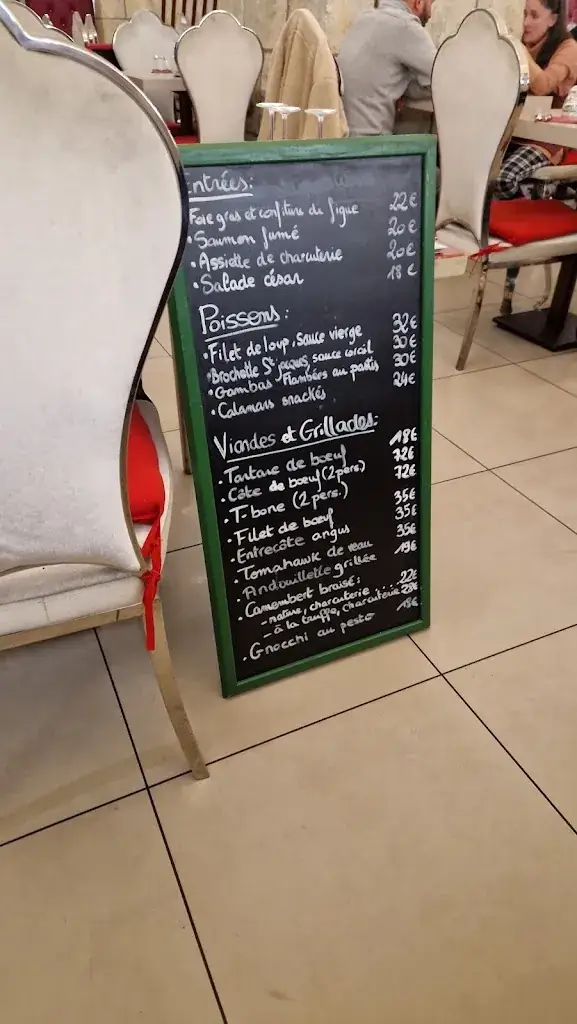 Entrées:
Foie gras et confiture de figue 22€
• Saumon fumé 20€
• Assiette de charcuterie 20€
• Salade césar 18€
Poissons:
• Filet de loup, sauce vierge 32€
• Brochette St jacques, sauce corail 30€
• Gambas Flambées au pastis 30€
• Calamars snackés 24€
Viandes et Grillades:
• Tartare de bœuf 18€
• Côte de bœuf (2 pers.) 72€
• T-bone (2 pers.) 72€
• Filet de bœuf 35€
• Entrecôte angus 35€
• Tomahawk de veau 35€
• Andouillette grillée 19€
• Camembert braisé:
- nature, charcuterie ... 22€
- à la truffe, charcuterie
• Gnocchi au pesto